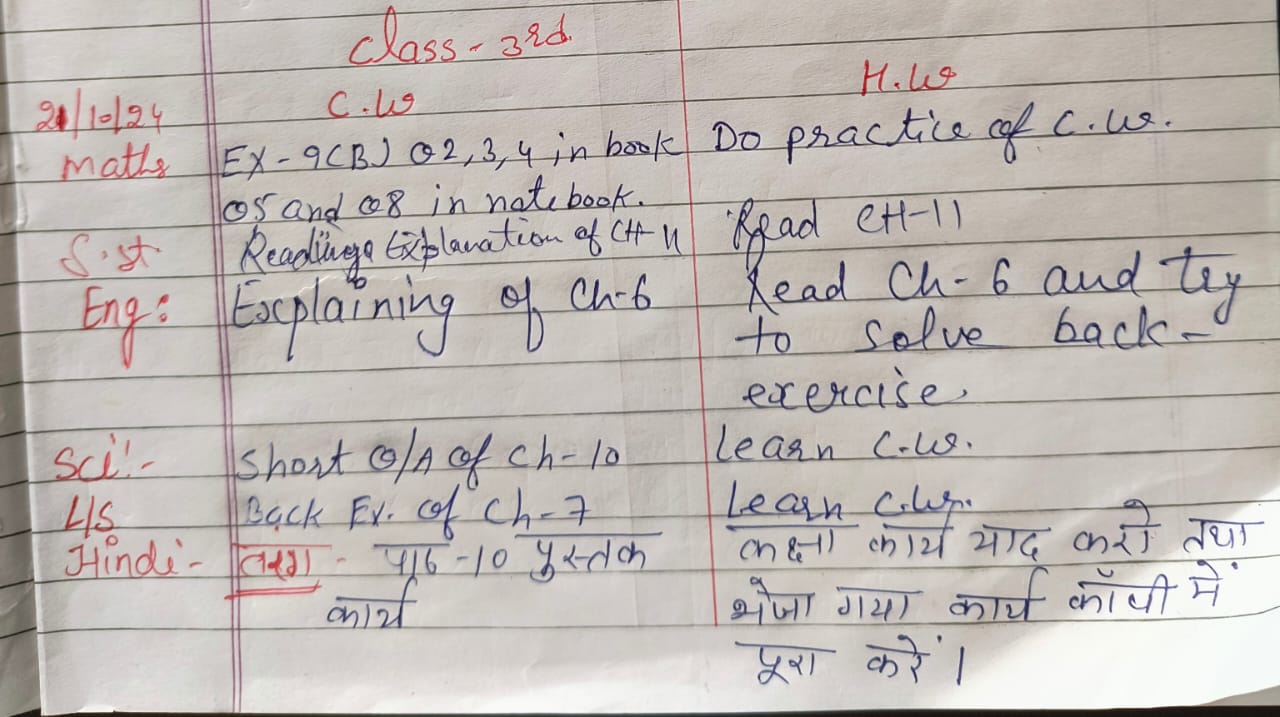 Class - 3rd
C.W H.W
21/10/24
Maths EX-9(B) Q2,3,4 in book Do practice of C.W.
Q5 and Q8 in notebook.
S.st Reading & Explanation of CH-11 Read CH-11
Eng: Explaining of Ch-6 Read Ch-6 and try
to solve back-
exercise.
Sci:- Short Q/A of Ch-10 Learn C.W.
L/S Back Ex. of Ch-7 Learn C.W.
Hindi- तरंग - पाठ -10 पुस्तक कक्षा कार्य याद करो तथा
कार्य भेजा गया कार्य कॉपी में
पूरा करें।